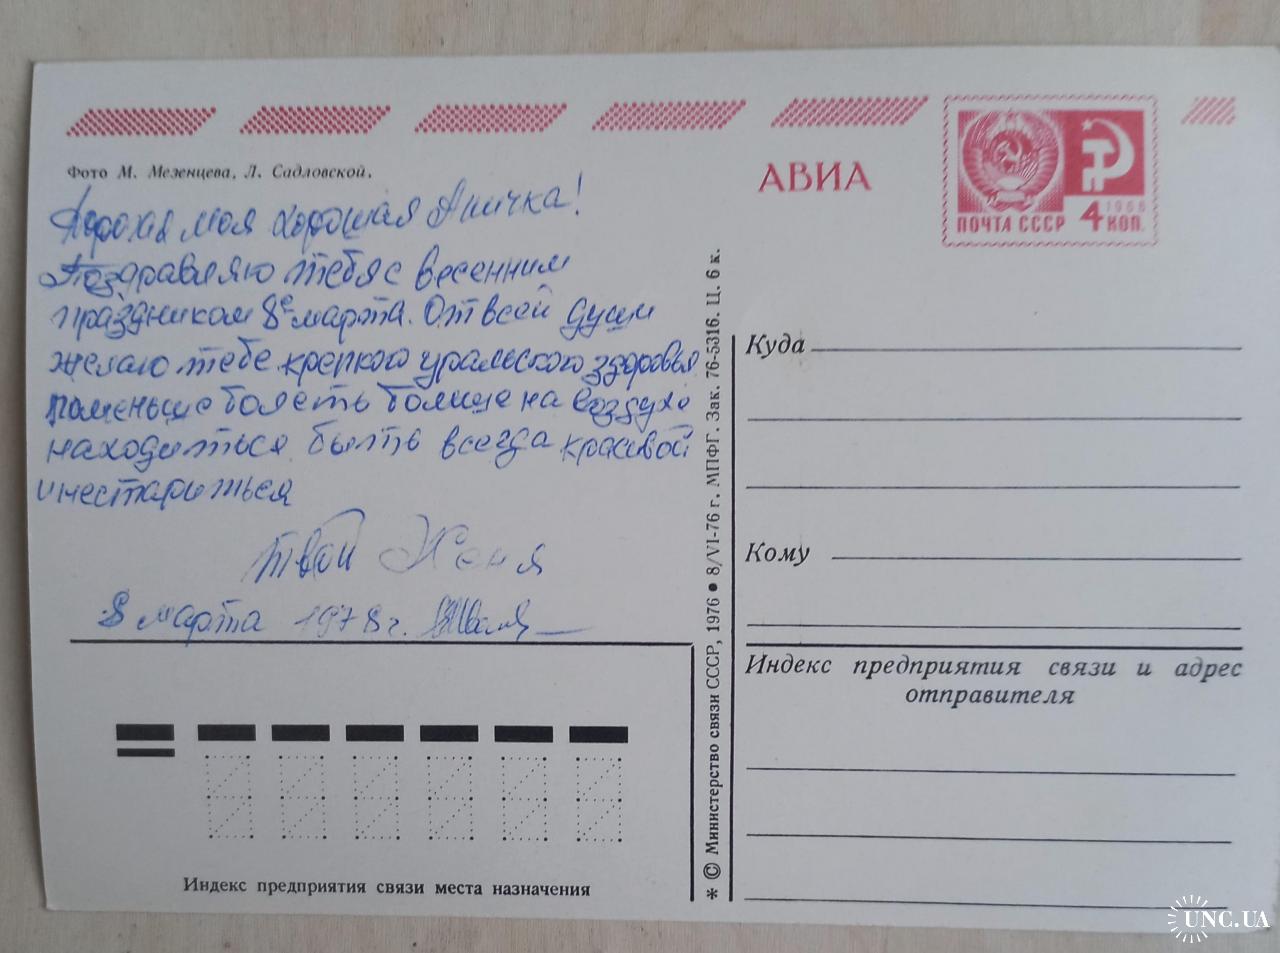 Фото М. Мезенцева, Л. Садловской.
АВИА
1966
ПОЧТА СССР 4 КОП.
Дорогая моя хорошая Аничка!
Поздравляю тебя с весенним
праздником 8е марта. От всей души
желаю тебе крепкого уральского здоровья
поменьше болеть больше на воздухе
находиться быть всегда красивой
и не стариться
твой Женя
8 марта 1978 г.
* © Министерство связи СССР, 1976 ● 8/VI-76 г. МПФГ. Зак. 76-5316. Ц. 6 к.
Куда
Кому
Индекс предприятия связи и адрес
отправителя
Индекс предприятия связи места назначения
UNC.UA